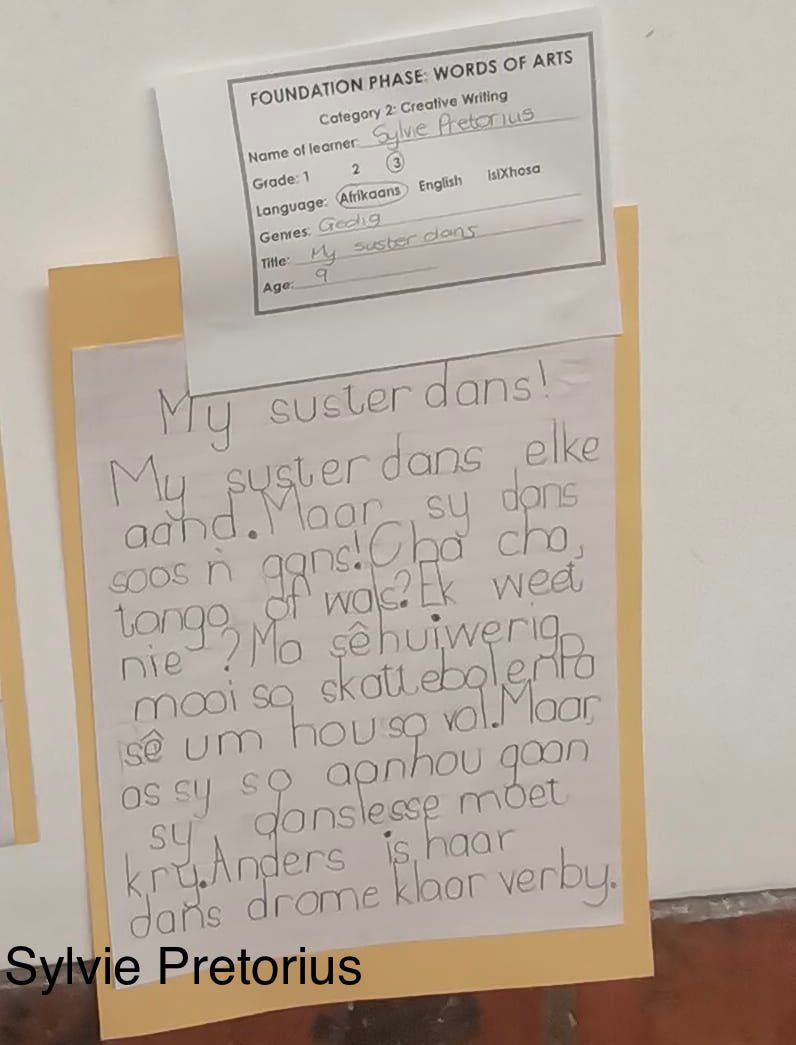 FOUNDATION PHASE: WORDS OF ARTS
Category 2: Creative Writing
Name of learner: Sylvie Pretorius
Grade: 1 2 3
Language: Afrikaans English IsiXhosa
Genres: Gedig
Title: My suster dans
Age: 9
My suster dans!
My suster dans elke
aand. Maar sy dans
soos ŉ gans! Cha cha,
tango of wals? Ek weet
nie? Ma sê huiwerig
mooi so skattebol en Pa
sê um hou so vol. Maar
as sy so aanhou gaan
sy danslesse moet
kry. Anders is haar
dans drome klaar verby.
Sylvie Pretorius